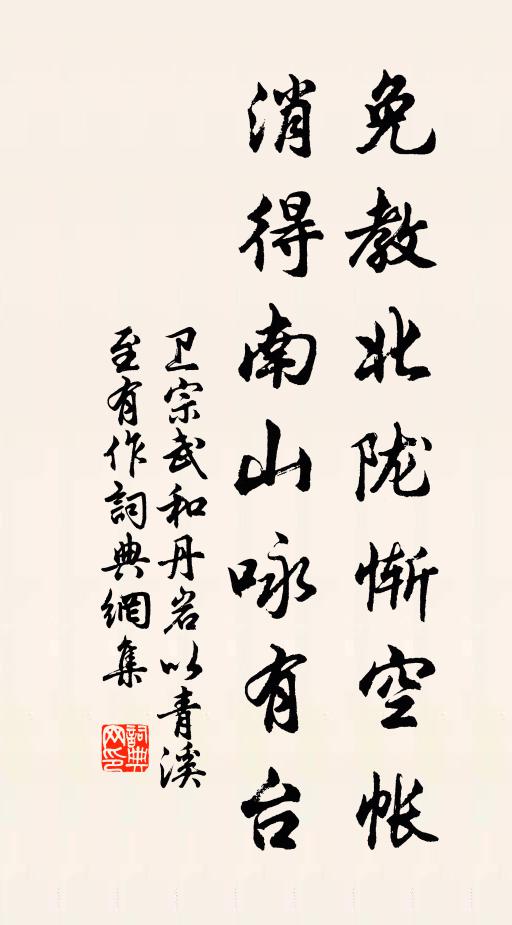 免教北陇惭空帐
消得南山咏有台
卫宗武和丹岩以青溪
至有作詞典網集
詞典
网印